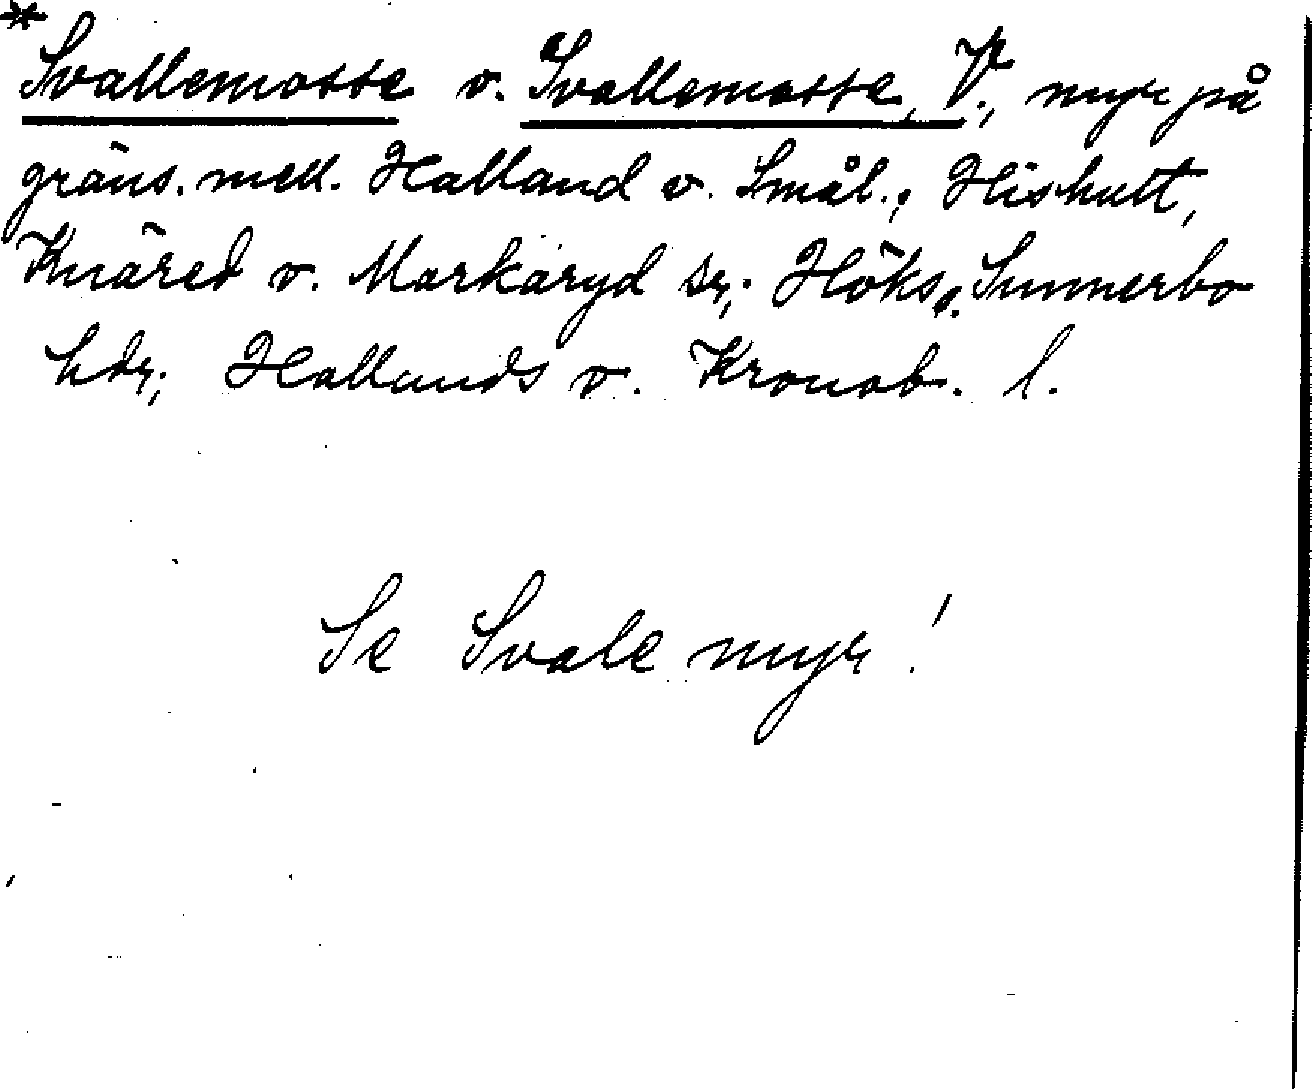 *Svallemosse o. Svallemosse, V., myr på
gräns. mell. Halland o. Smål.; Hishult,
Knäred o. Markaryd sr; Höks o. Sunnerbo
hdr; Hallands o. Kronob. l.
Se Svale myr!